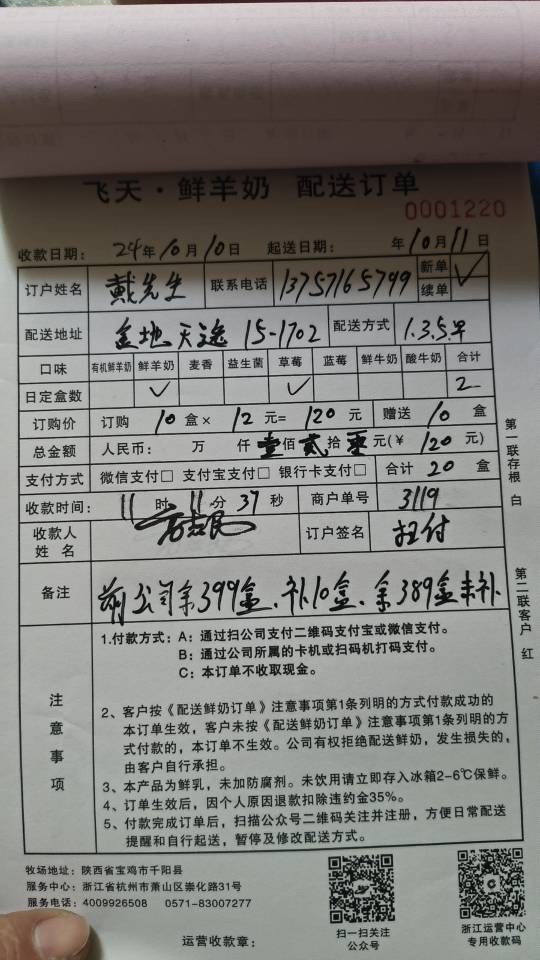 飞天·鲜羊奶 配送订单
0001220
收款日期: 24年10月10日 起送日期: 年10月11日
订户姓名 戴先生 联系电话 13757165799 新单 ✓
续单
配送地址 金地天逸 15-1702 配送方式 1.3.5.早
口味 有机鲜羊奶 鲜羊奶 麦香 益生菌 草莓 蓝莓 鲜牛奶 酸牛奶 合计
日定盒数 ✓ ✓ 2
订购价 订购 10 盒× 12 元= 120 元 赠送 10 盒
总金额 人民币: 万 仟 壹佰 贰拾 零元(¥ 120 元)
支付方式 微信支付□ 支付宝支付□ 银行卡支付□ 合计 20 盒
收款时间: 11 时 11 分 37 秒 商户单号 3119
收款人
姓 名 订户签名 扫付
备注 前公司余399盒、补10盒、余389盒未补
注意事项
1.付款方式: A: 通过扫公司支付二维码支付宝或微信支付。
B: 通过公司所属的卡机或扫码机打码支付。
C: 本订单不收取现金。
2、客户按《配送鲜奶订单》注意事项第1条列明的方式付款成功的
本订单生效，客户未按《配送鲜奶订单》注意事项第1条列明的方
式付款的，本订单不生效。公司有权拒绝配送鲜奶，发生损失的，
由客户自行承担。
3、本产品为鲜乳，未加防腐剂。未饮用请立即存入冰箱2-6℃保鲜。
4、订单生效后，因个人原因退款扣除违约金35%。
5、付款完成订单后，扫描公众号二维码关注并注册，方便日常配送
提醒和自行起送，暂停及修改配送方式。
第一联存根 白
第二联客户 红
牧场地址: 陕西省宝鸡市千阳县
服务中心: 浙江省杭州市萧山区崇化路31号
服务电话: 4009926508 0571-83007277
运营收款章:
扫一扫关注
公众号
浙江运营中心
专用收款码